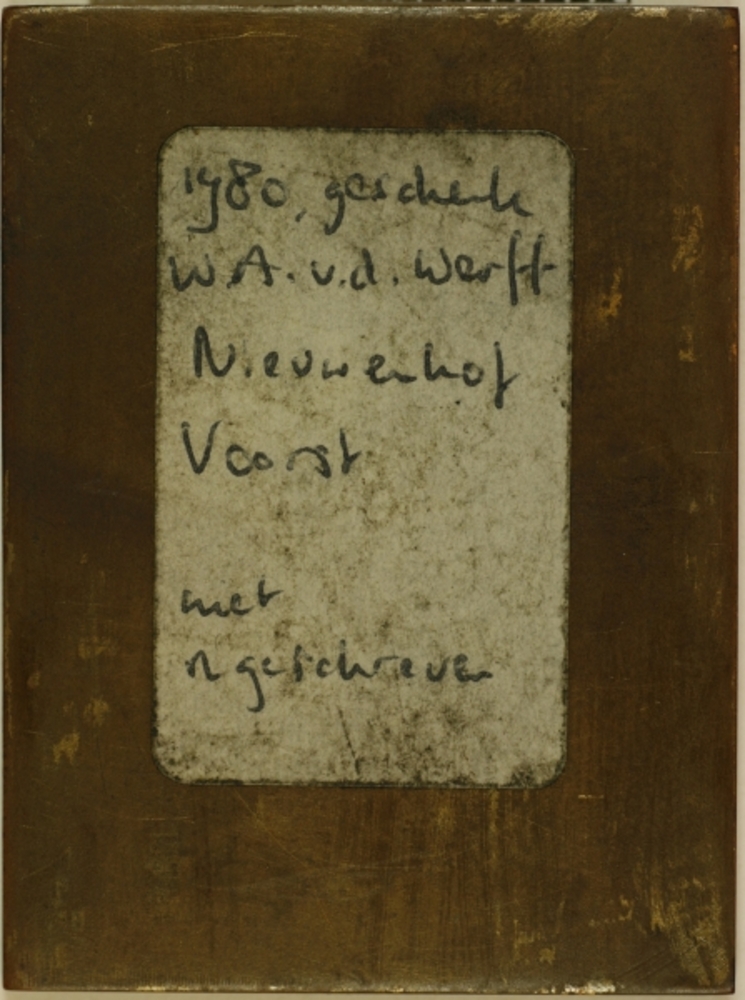 1980, geschenk
W.A. v.d. Werff
Nieuwenhof
Voorst
met
geschreven